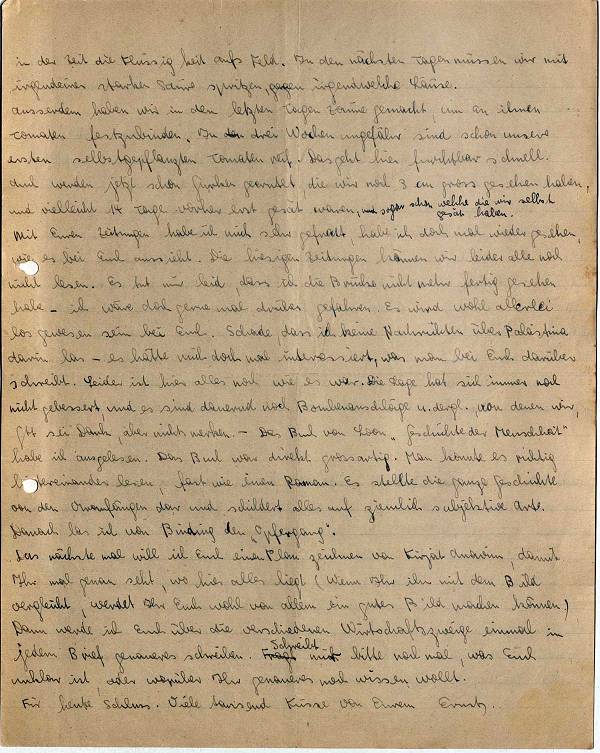 in der Zeit die Flüssigkeit aufs Feld. In den nächsten Tagen müssen wir mit
irgendeiner starken Säure spritzen, gegen irgendwelche Läuse.
Ausserdem haben wir in den letzten Tagen Zäune gemacht, um an ihnen
Tomaten festzubinden. In den drei Wochen ungefähr sind schon unsere
ersten selbstgepflanzten Tomaten reif. Das geht hier furchtbar schnell.
Auch werden jetzt schon Gurken geerntet, die wir noch 3 cm gross gesehen haben,
und vielleicht 14 Tage vorher erst gesät waren, und sogar schon welche die wir selbst
gesät haben.
Mit Euren Zeitungen habe ich mich sehr gefreut, habe ich doch mal wieder gesehen,
wie es bei Euch aussieht. Die hiesigen Zeitungen können wir leider alle noch
nicht lesen. Es tut mir leid, dass ich die Brücke nicht mehr fertig gesehen
habe - ich wäre doch gerne mal drüber gefahren. Es wird wohl allerlei
los gewesen sein bei Euch. Schade, dass ich keine Nachrichten über Palästina
darin las - es hätte mich doch mal interessiert, was man bei Euch darüber
schreibt. Leider ist hier alles noch wie es war. Die Lage hat sich immer noch
nicht gebessert und es sind dauernd noch Bombenanschläge u. dergl., von denen wir,
Gtt sei Dank, aber nichts merken. - Das Buch von Loon „Geschichte der Menschheit"
habe ich ausgelesen. Das Buch war direkt grossartig. Man konnte es richtig
hintereinander lesen, fast wie einen Roman. Es stellte die ganze Geschichte
von den Uranfängen dar und schildert alles auf ziemlich subjektive Art.
Danach las ich von Binding den „Opfergang".
Das nächste mal will ich Euch einen Plan zeichnen von Kirjat Anavim, damit
Ihr mal genau seht, wo hier alles liegt (Wenn Ihr ihn mit dem Bild
vergleicht, werdet Ihr Euch wohl von allem ein gutes Bild machen können)
Dann werde ich Euch über die verschiedenen Wirtschaftszweige einmal in
jedem Brief genaueres schreiben. Schreibt mir bitte noch mal, was Euch
unklar ist, oder worüber Ihr genaueres noch wissen wollt.
Für heute Schluss. Viele tausend Küsse von Eurem Ernst.